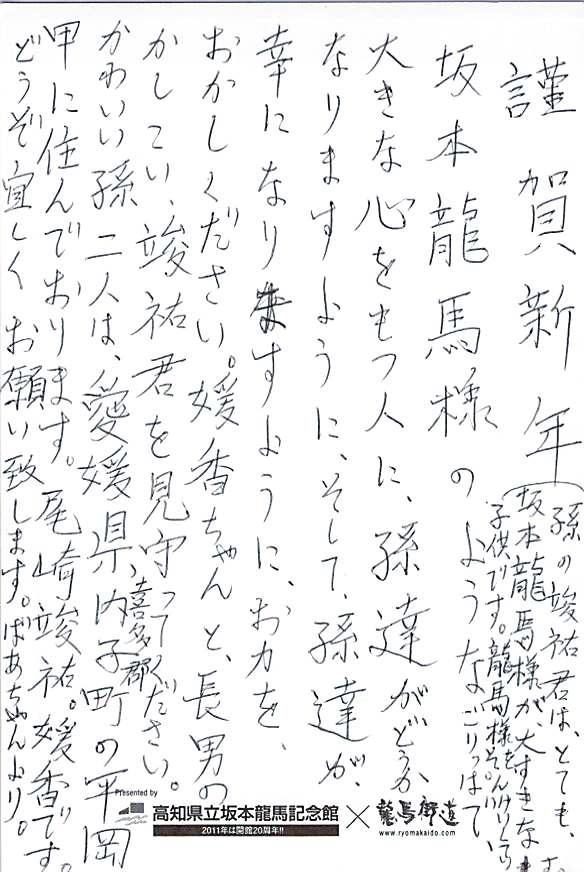 謹賀新年
(孫の竣祐君は、とても、
坂本龍馬様が、大すきな
子供です。龍馬様を
坂本龍馬様のようなごりっぱで、
大きな心をもつ人に、孫達がどうか
なりますように、そして、孫達が、
幸になりますように、お力を、
おかしください。媛香ちゃんと、長男の
かしこい、竣祐君を見守ってください。
かわいい孫二人は、愛媛県、喜多郡内子町の平岡
甲に住んでおります。尾崎竣祐。媛香です。
どうぞ宜しくお願い致します。ばあちゃんより。
Presented by
高知県立坂本龍馬記念館
2011年は開館20周年!!
×
龍馬街道
www.ryomakaido.com